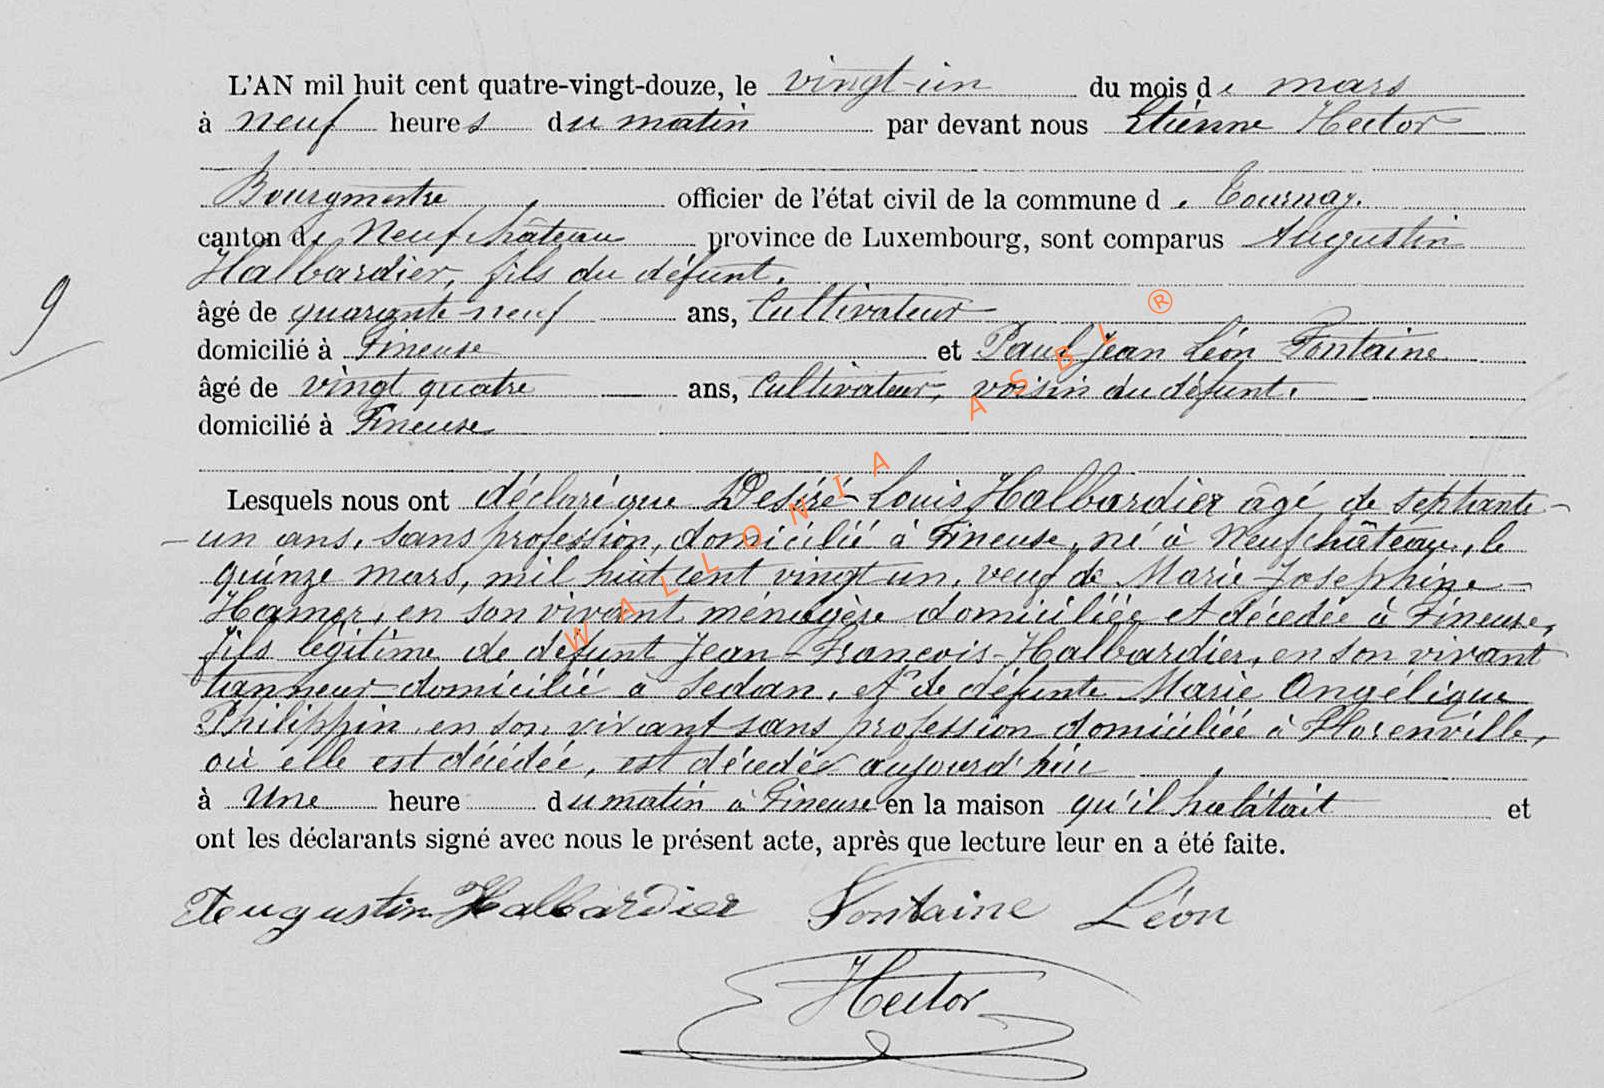 L'AN mil huit cent quatre-vingt-douze, le vingt-un du mois de mars
à neuf heures du matin par devant nous Etienne Hector
Bourgmestre officier de l'état civil de la commune de Tournay.
canton de Neufchâteau province de Luxembourg, sont comparus Augustin
Halbardier, fils du défunt.
9
âgé de quarante neuf ans, Cultivateur
domicilié à Fineuse et Paul Jean Léon Fontaine
âgé de vingt quatre ans, Cultivateur, voisin du défunt.
domicilié à Fineuse
Lesquels nous ont déclaré que Desiré Louis Halbardier âgé de septante-
-un ans, sans profession, domicilié à Fineuse, né à Neufchâteau, le
quinze mars, mil huit cent vingt un, veuf de Marie-Josephine
Hamer, en son vivant ménagère domiciliée et décedée à Fineuse,
fils légitime de défunt Jean-François-Halbardier, en son vivant
tanneur domicilié à Sedan, et de défunte Marie Angélique
Philippin en son vivant sans profession domiciliée à Florenville,
où elle est décédée, est décedé aujourd'hui
à Une heure du matin à Fineuse en la maison qu'il habitait et
ont les déclarants signé avec nous le présent acte, après que lecture leur en a été faite.
Augustin Halbardier Fontaine Léon
Hector
WALLONIA ASBL ®